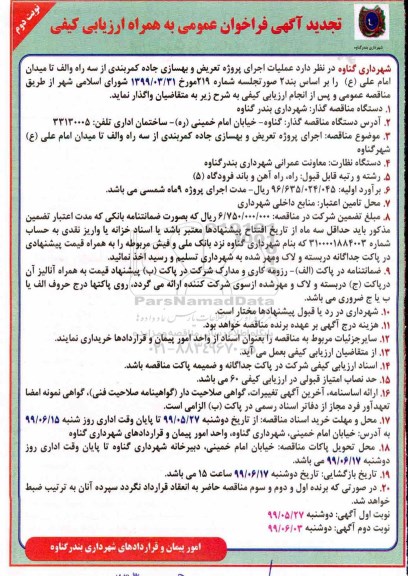 نوبت دوم
تجدید آگهی فراخوان عمومی به همراه ارزیابی کیفی
شهرداری بندرگناوه
شهرداری گناوه در نظر دارد عملیات اجرای پروژه تعریض و بهسازی جاده کمربندی از سه راه والف تا میدان
امام علی (ع) را بر اساس بند۲ صورتجلسه شماره ۲۱۹مورخ ۱۳۹۹/۰۳/۳۱ شورای اسلامی شهر از طریق
مناقصه عمومی و پس از انجام ارزیابی کیفی به شرح زیر به متقاضیان واگذار نماید.
۱. دستگاه مناقصه گذار: شهرداری بندر گناوه
۲. آدرس دستگاه مناقصه گذار: گناوه- خیابان امام خمینی (ره)- ساختمان اداری تلفن: ۳۳۱۳۰۰۰۵
۳. موضوع مناقصه: اجرای پروژه تعریض و بهسازی جاده کمربندی از سه راه والف تا میدان امام علی (ع)
شهرگناوه
۴. دستگاه نظارت: معاونت عمرانی شهرداری بندرگناوه
۵. رشته و رتبه قابل قبول: راه، راه آهن و باند فرودگاه (۵)
۶. برآورد اولیه: ۹۶/۶۳۵/۰۲۴/۰۴۵ ریال- مدت اجرای پروژه ۹ماه شمسی می باشد.
۷. محل تامین اعتبار: منابع داخلی شهرداری
۸. مبلغ تضمین شرکت در مناقصه: ۶/۷۵۰/۰۰۰/۰۰۰ ریال که بصورت ضمانتنامه بانکی که مدت اعتبار تضمین
مذکور باید حداقل سه ماه از تاریخ افتتاح پیشنهادها معتبر باشد یا اسناد خزانه یا واریز نقدی به حساب
شماره ۳۱۰۰۰۰۱۸۸۴۰۰۳ که بنام شهرداری گناوه نزد بانک ملی و فیش مربوطه را به همراه قیمت پیشنهادی
در پاکت جداگانه دربسته و لاک ومهر شده به شهرداری تسلیم و رسید اخذ نمائید.
۹. ضمانتنامه در پاکت (الف) – رزومه کاری و مدارک شرکت در پاکت (ب) پیشنهاد قیمت به همراه آنالیز آن
درپاکت (ج) دربسته و لاک و مهرشده ازسوی شرکت کننده ارائه می گردد، روی پاکتها درج حروف الف یا
ب یا ج ضروری می باشد.
۱۰. شهرداری در رد یا قبول پیشنهادها مختار است.
۱۱. هزینه درج آگهی بر عهده برنده مناقصه خواهد بود.
۱۲. سایرجزئیات مربوط به مناقصه را بعنوان اسناد از واحد امور پیمان و قراردادها خریداری نمایند.
۱۳. از متقاضیان ارزیابی کیفی بعمل می آید.
۱۴. اسناد ارزیابی کیفی شرکت در پاکت جداگانه و ضمیمه پاکت مناقصه باشد.
۱۵. حد نصاب امتیاز قبولی در ارزیابی کیفی ۶۰ می باشد.
۱۶. ارائه اساسنامه، آخرین آگهی تغییرات، گواهی صلاحیت دار (گواهینامه صلاحیت فنی)، گواهی نمونه امضا
تعهدآور فرد مجاز از دفاتر اسناد رسمی در پاکت (ب) الزامی است.
۱۷. محل و مهلت خرید اسناد مناقصه: از تاریخ دوشنبه ۹۹/۰۵/۲۷ تا پایان وقت اداری روز شنبه ۹۹/۰۶/۱۵
به آدرس: خیابان امام خمینی، شهرداری گناوه، واحد امور پیمان و قراردادهای شهرداری گناوه
۱۸. محل تحویل پاکات مناقصه: خیابان امام خمینی، دبیرخانه شهرداری گناوه تا پایان وقت اداری روز
دوشنبه ۹۹/۰۶/۱۷ می باشد.
۱۹. تاریخ بازگشایی: تاریخ دوشنبه ۹۹/۰۶/۱۷ ساعت ۱۵ می باشد.
۲۰. در صورتی که برنده اول و دوم و سوم مناقصه حاضر به انعقاد قرارداد نگردد سپرده آنان به ترتیب ضبط
خواهد شد.
نوبت اول آگهی: دوشنبه ۹۹/۰۵/۲۷
نوبت دوم آگهی: دوشنبه ۹۹/۰۶/۰۳
امور پیمان و قراردادهای شهرداری بندرگناوه
ParsNamadData
۰۲۱-۸۸۳۴۹۶۷۰